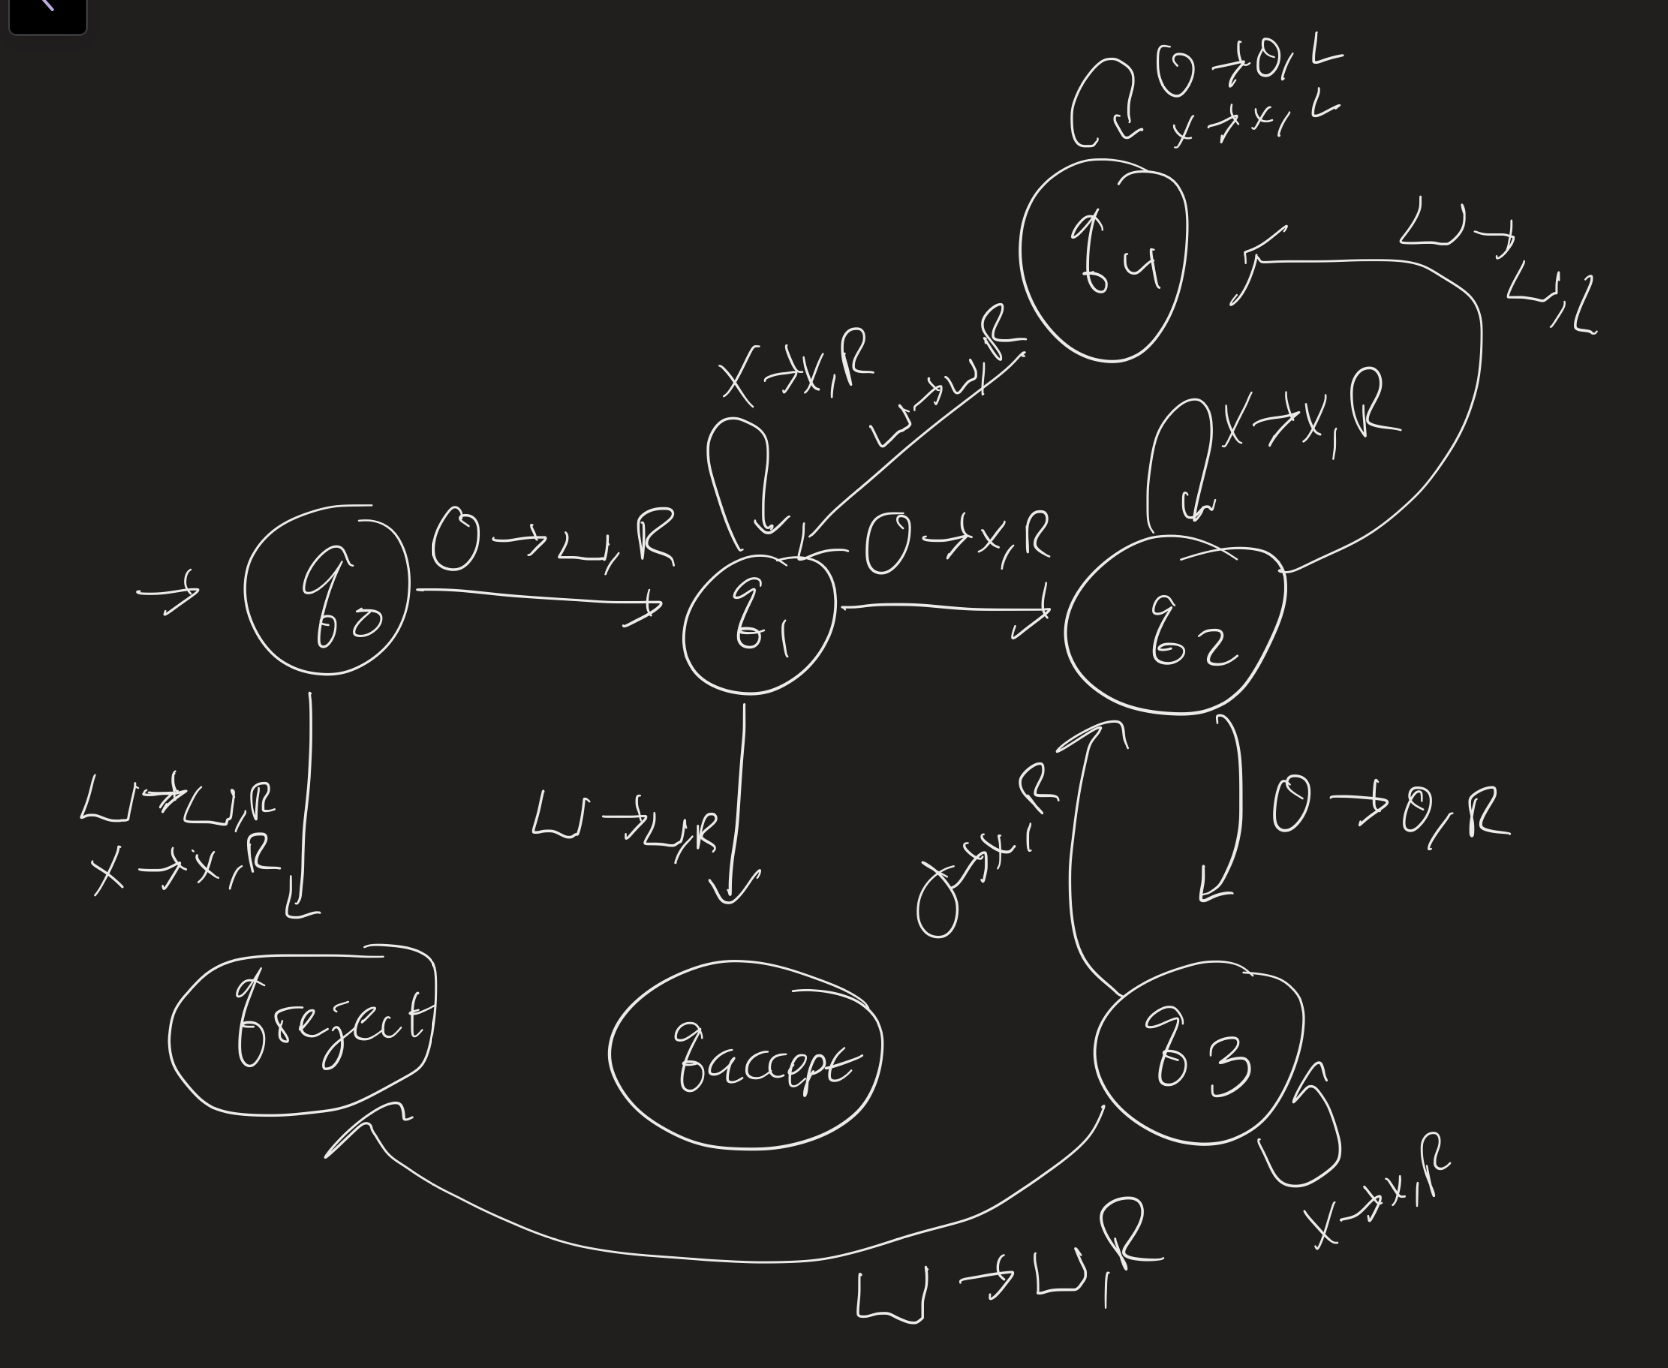 0→0, L
x→x, L
q4
⊔→
⊔, L
x→x, R
⊔→⊔, R
x→x, R
0→⊔, R
0→x, R
→
q0
q1
q2
⊔→⊔, R
x→x, R
⊔→⊔, R
0→x, R
0→0, R
qreject
qaccept
q3
x→x, R
⊔→⊔, R